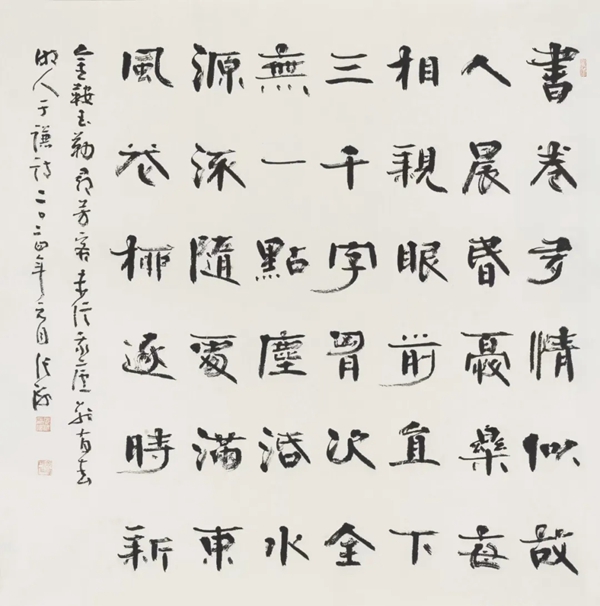 書卷多情似故
人晨昏憂樂每
相親眼前直下
三千字胷次全
無一點塵活水
源流隨處滿東
風花柳逐時新
金鞍玉勒尋芳客未信我廬别有春
明人于謙詩二〇二四年元月